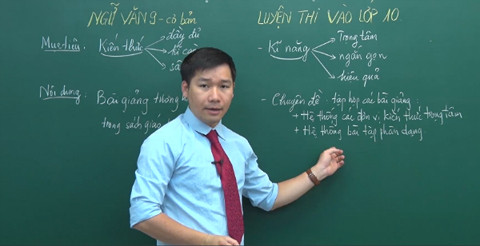 NGỮ VĂN 9 - cơ bản
Mục tiêu: Kiến thức
đầy đủ
Nội dung: Bài giảng trong
trong sách giáo
LUYỆN THI VÀO LỚP 10.
- Kĩ năng
Trọng tâm
ngắn gọn
hiệu quả
- Chuyên đề: tập hợp các bài giảng
+ Hệ thống các đơn vị kiến thức trọng tâm
+ Hệ thống bài tập phần dạng